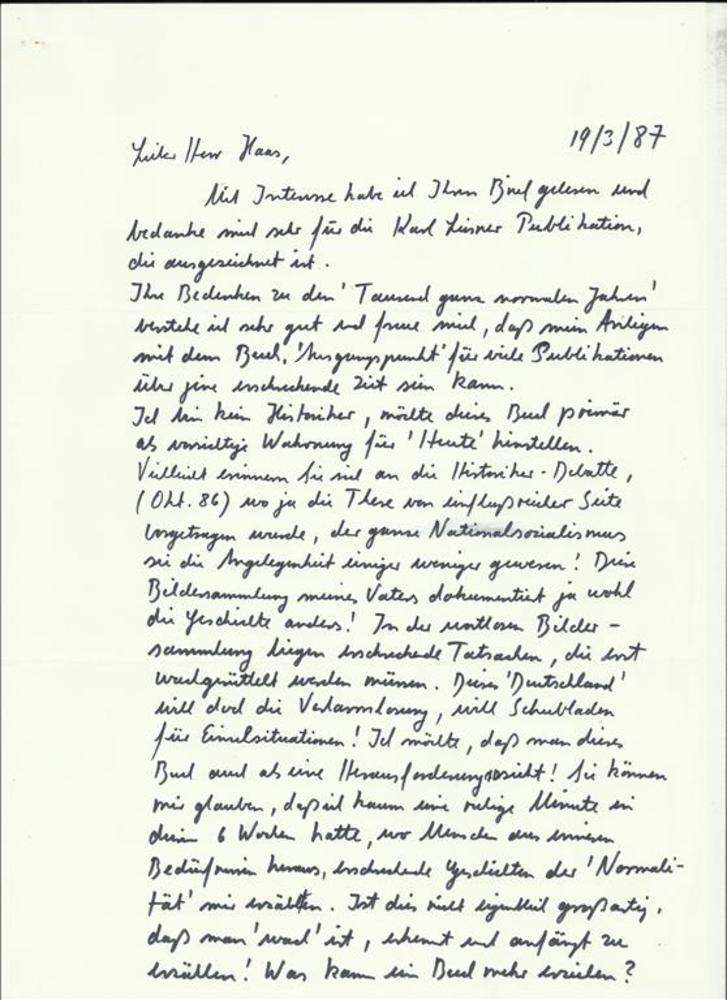 19/3/87
Lieber Herr Haas,
Mit Interesse habe ich Ihren Brief gelesen und
bedanke mich sehr für die Karl Leisner Publikation,
die ausgezeichnet ist.
Ihre Bedenken zu den 'Tausend ganz normalen Jahren'
verstehe ich sehr gut und freue mich, daß mein Anliegen
mit dem Buch, 'Ausgangspunkt' für viele Publikationen
über jene erschreckende Zeit sein kann.
Ich bin kein Historiker, möchte dieses Buch primär
als vorsichtige Warnung für 'Heute' hinstellen.
Vielleicht erinnern Sie sich an die Historiker-Debatte,
(Okt. 86) wo ja die These von einflußreicher Seite
vorgetragen wurde, der ganze Nationalsozialismus
sei die Angelegenheit einiger weniger gewesen! Diese
Bildersammlung meines Vaters dokumentiert ja wohl
die Geschichte anders! In der wortlosen Bilder-
sammlung liegen erschreckende Tatsachen, die erst
wachgerüttelt werden müssen. Dieses 'Deutschland'
will doch die Verharmlosung, will Schubladen
für Einzelsituationen! Ich möchte, daß man dieses
Buch auch als eine Herausforderung sieht! Sie können
mir glauben, daß ich kaum eine ruhige Minute in
diesen 6 Wochen hatte, wo Menschen aus innerem
Bedürfnis heraus, erschreckende Geschichten der 'Normali-
tät' mir erzählten. Ist dies nicht eigentlich großartig,
daß man 'wach' ist, erkennt und anfängt zu
erzählen! Was kann ein Buch mehr erreichen?